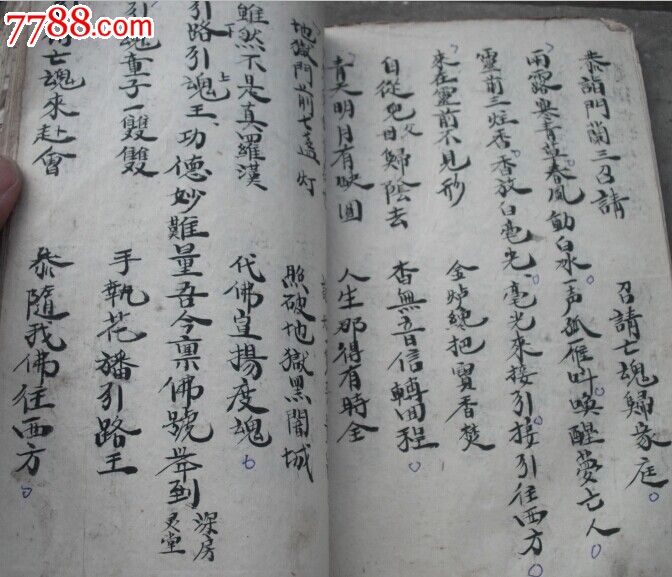 7788.com
恭詣門蘭三召請 召請亡魂歸家庭
雨露寒青草春風動白水一声孤雁叫喚醒夢亡人
靈前三炷香香放白毫光毫光來接引接引往西方
來在靈前不見形 金炉纔把寶香焚
自從兒父母歸陰去 杳無音信轉回程
青天明月有缺圓 人生那得有時全
地獄門前七盞灯 照破地獄黑闇城
雖然不是真羅漢 代佛宣揚度魂
引路引魂王功德妙難量吾今禀佛號举到深房灵堂
引魂童子一雙雙 手執花旛引路王
請亡魂來赴會 恭隨我佛往西方